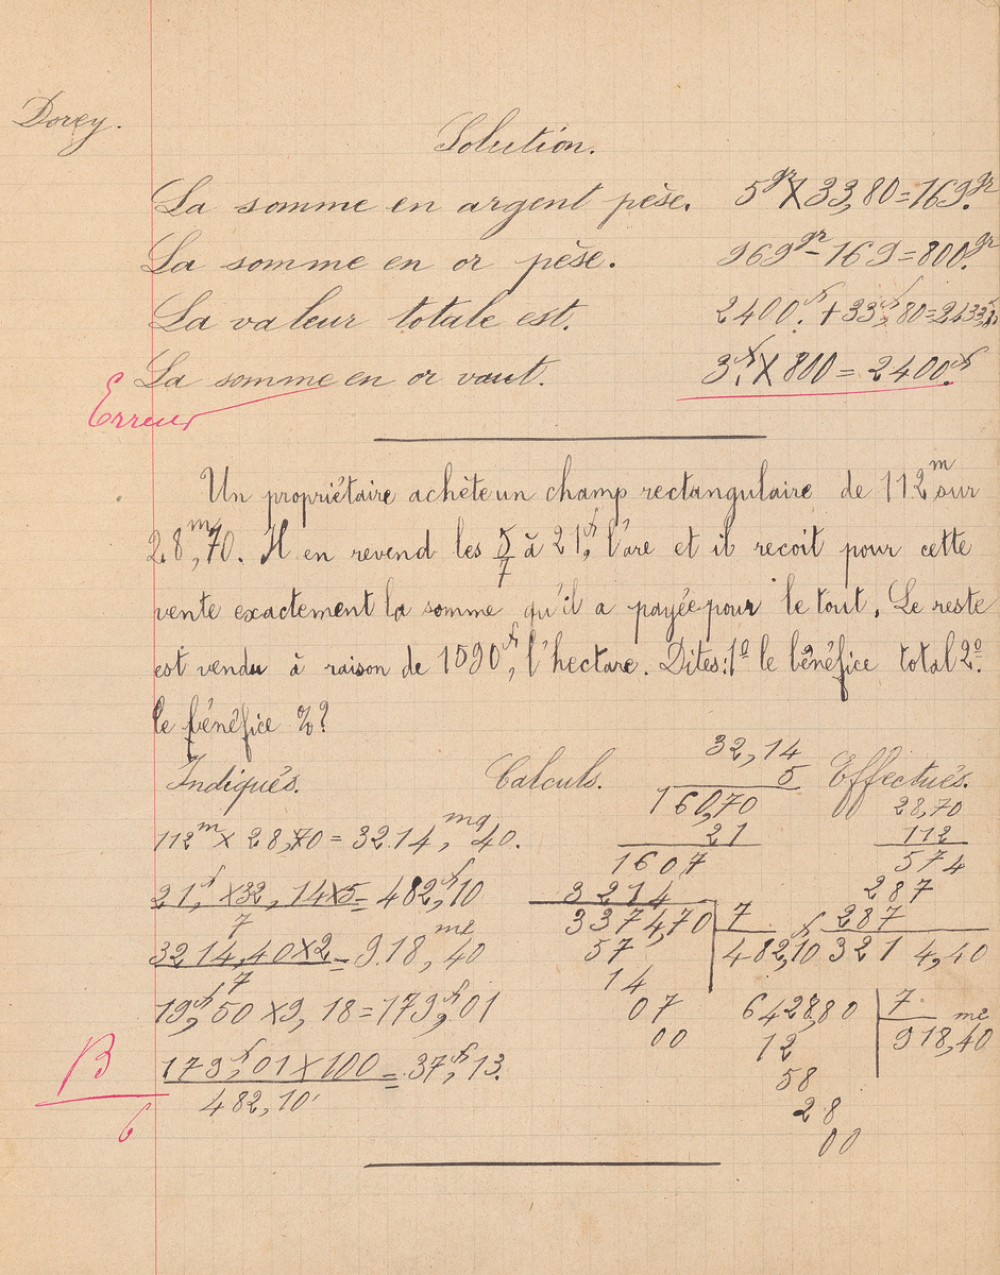 Dorey.
Solution.
La somme en argent pèse. 5gr X 33,80 = 169.gr
La somme en or pèse. 969gr - 169 = 800.gr
La valeur totale est. 2400.f + 33f,80 = 2433f,80
La somme en or vaut. 3.f X 800 = 2400.f
Erreur
Un propriétaire achète un champ rectangulaire de 112m sur
28m,70. Il en revend les 5/7 à 21f, l'are et il recoit pour cette
vente exactement la somme qu'il a payée pour le tout. Le reste
est vendu à raison de 1590f, l'hectare. Dites: 1º le bénéfice total 2º.
le bénéfice %?
Indiqués. Calculs. Effectués.
112m x 28,70 = 32.14,mq 40.
21,f x 32,14 x 5 = 482,f10
7
3214,40 x 2 = 918,mc 40
7
19f,50 x 9,18 = 179,f01
179,f01 x 100 = 37,f13.
482,10
B
6
32,14
5
160,70
21
1607
3214
3374,70 7
57 482,f10
14
07
00
28,70
112
574
287
287
3214,40
6428,80 7
12 918,mc40
58
28
00